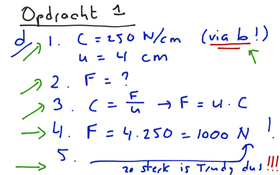 Opdracht 1
d) 1. C = 250 N/cm (via b!)
u = 4 cm
2. F = ?
3. C = F/u → F = u · C
4. F = 4 · 250 = 1000 N !
5.
zo sterk is Trudy dus!!!